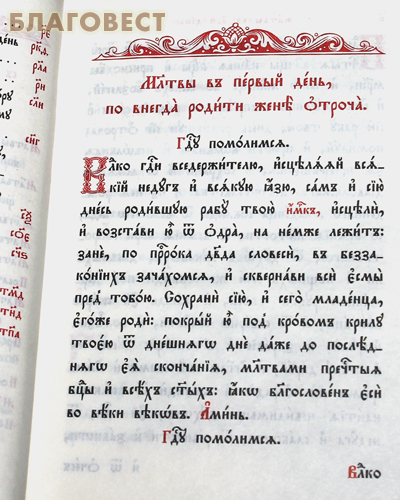 БЛАГОВЕСТ
Мл҃твы въ пе́рвый де́нь,
по внегда̀ роди́ти женѣ̀ ѻ҆троча̀.
Гдⷭ҇ꙋ помо́лимсѧ.
Влⷣко гдⷭ҇и вседержи́телю, и҆сцѣлѧ́ѧй всѧ́-
кїй недꙋ́гъ и҆ всѧ́кꙋю ꙗ҆́зю, са́мъ и҆ сїю̀
дне́сь роди́вшꙋю рабꙋ̀ твою̀ и҆́м҃къ, и҆сцѣлѝ,
и҆ возста́ви ю҆̀ ѿ ѻ҆дра̀, на не́мже лежи́тъ:
занѐ, по прⷪ҇ро́ка дв҃да словесѝ, въ безза-
ко́нїихъ зача́хомсѧ, и҆ скве́рнави всѝ є҆смы̀
пред̾ тобо́ю. Сохранѝ сїю̀, и҆ сего̀ младе́нца,
є҆го́же родѝ: покры́й ю҆̀ под̾ кро́вомъ крилꙋ̀
твоє́ю ѿ дне́шнѧгѡ днѐ да́же до послѣ́д-
нѧгѡ є҆ѧ̀ сконча́нїѧ, мл҃твами пречⷭ҇тыѧ
бцⷣы и҆ всѣ́хъ ст҃ы́хъ: ꙗ҆́кѡ бл҃гослове́нъ є҆сѝ
во вѣ́ки вѣкѡ́въ. А҆ми́нь.
Гдⷭ҇ꙋ помо́лимсѧ.
Влⷣко